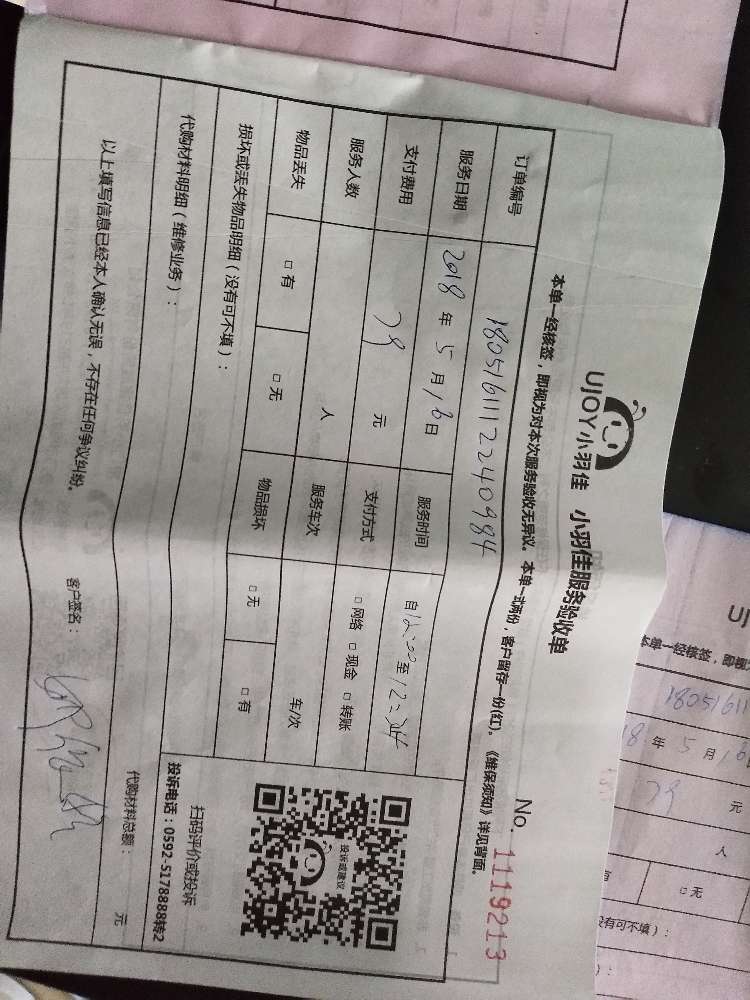 UJOY小羽佳 小羽佳服务验收单
No. 1119213
本单一经核签，即视为对本次服务验收无异议。本单一式两份，客户留存一份(红)。《维保须知》详见背面。
订单编号 180516111224 0984
服务日期 2018 年 5 月 18 日 服务时间 自 12:00 至 12:34
支付费用 79 元 支付方式 □ 网络 □ 现金 □ 转账
服务人数 人 服务车次 车/次
物品丢失 □ 有 □ 无 物品损坏 □ 无 □ 有
损坏或丢失物品明细（没有可不填）：
投诉或建议
扫码评价或投诉
投诉电话：0592-5178888转2
代购材料明细（维修业务）：
代购材料总额： 元
以上填写信息已经本人确认无误，不存在任何争议纠纷。
客户签名：
UJ
本单一经核签，即视
18051611
18 年 5 月
元
人
□ 无
没有可不填）：